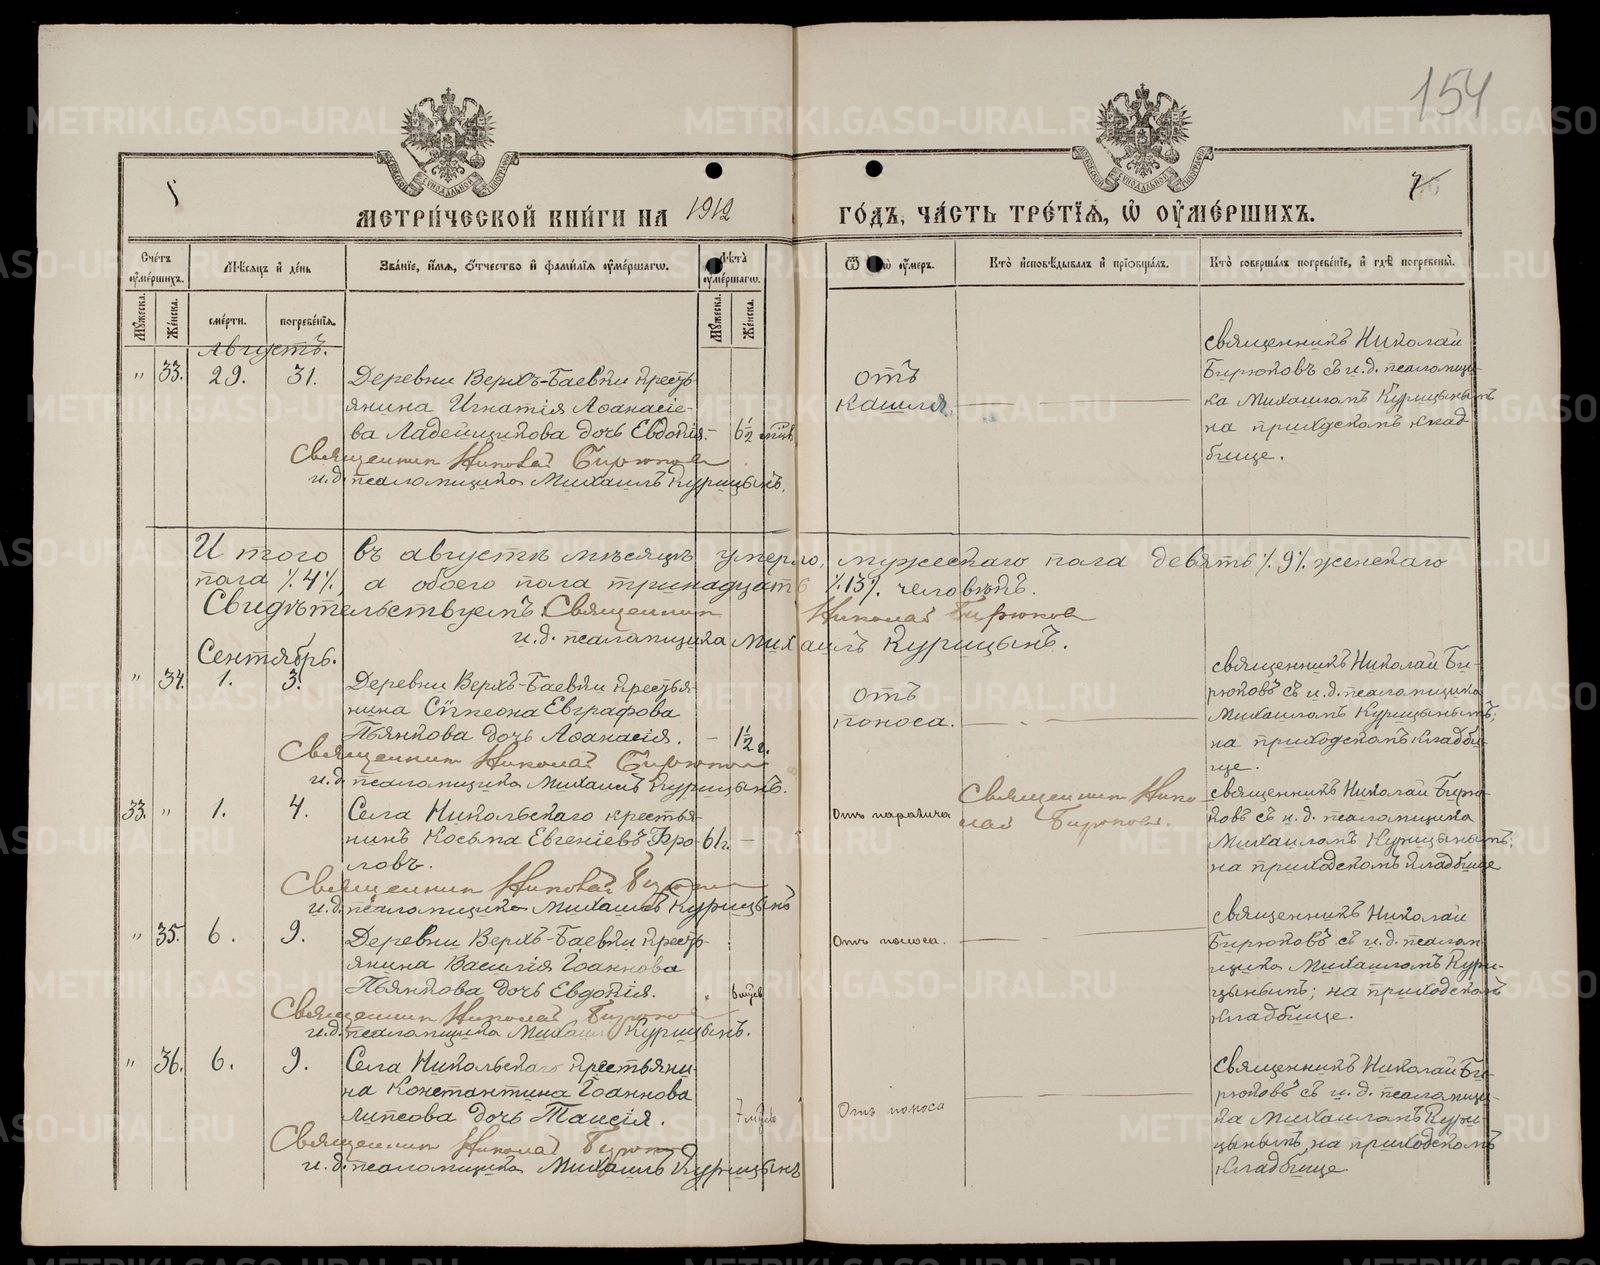 154
МЕТРИ́ЧЕСКОЙ КНИ́ГИ НА 1912 ГО́ДЪ, ЧА́СТЬ ТРЕ́ТІѦ, Ѡ҆ ОУ҆МЕ́РШИХЪ.
Сче́тъ оу҆ме́ршихъ.
Мѣ́сѧцъ и҆ де́нь
Зва́нїе, и҆́мѧ, ѻ҆́тчество и҆ фами́лїѧ оу҆ме́ршагѡ.
Лѣ́та оу҆ме́ршагѡ.
Кто̀ и҆сповѣ́дывалъ и҆ прїѡбща́лъ.
Кто̀ соверша́лъ погребе́нїе, и҆ гдѣ̀ погребены̀.
Мꙋ́жеска.
Же́нска.
сме́рти.
погребе́нїѧ.
Мꙋ́жеска.
Же́нска.
Августъ.
" 33. 29. 31.
Деревни Верхъ-Баевки кресть-
янина Игнатія Аѳанасіе-
ва Ладейщикова дочь Евдокія. - 6½ мѣс.
Священник Николай Бирюков
и.д. псаломщика Михаилъ Курицынъ.
отъ
кашля.
священникъ Николай
Бирюковъ съ и.д. псаломщи-
ка Михаиломъ Курицынымъ
на приходскомъ клад-
бище.
Итого въ августѣ мѣсяцѣ умерло, мужескаго пола девять ٪9٪ женскаго
пола ٪4٪, а обоего пола тринадцать ٪13٪ человѣкъ.
Свидѣтельствуемъ: Священник Николай Бирюков
и.д. псаломщика Михаилъ Курицынъ.
Сентябрь.
" 34. 1. 3.
Деревни Верхъ-Баевки крестья-
нина Сѷмеона Евграфова
Пьянкова дочь Аѳанасія. - 1½ г.
Священник Николай Бирюков
и.д. псаломщика Михаилъ Курицынъ.
отъ
поноса.
священникъ Николай Би-
рюковъ съ и.д. псаломщика
Михаиломъ Курицынымъ;
на приходскомъ кладби-
ще.
33. " 1. 4.
Села Никольскаго крестья-
нинъ Косьма Евгеніевъ Фро- 61 г. -
ловъ.
Священник Николай Бирюков
и.д. псаломщика Михаилъ Курицынъ
Отъ паралича
Священник Нико-
лай Бирюков.
священникъ Николай Бирю-
ковъ съ и.д. псаломщика
Михаиломъ Курицынымъ;
на приходскомъ кладбище
" 35. 6. 9.
Деревни Верхъ-Баевки кресть-
янина Василія Іоаннова
Пьянкова дочь Евдокія. "
Священник Николай Бирюков
и.д. псаломщика Михаилъ Курицынъ.
Отъ поноса.
священникъ Николай
Бирюковъ съ и.д. псалом-
щика Михаиломъ Кури-
цынымъ; на приходскомъ
кладбище.
" 36. 6. 9.
Села Никольскаго крестьяни-
на Константина Іоаннова
Липсова дочь Таисія. 7 мѣс.
Священник Николай Бирюков
и.д. псаломщика Михаилъ Курицынъ
Отъ поноса
священникъ Николай Би-
рюковъ съ и.д. псаломщи-
ка Михаиломъ Кури-
цынымъ, на приходскомъ
кладбище
METRIKI.GASO-URAL.RU